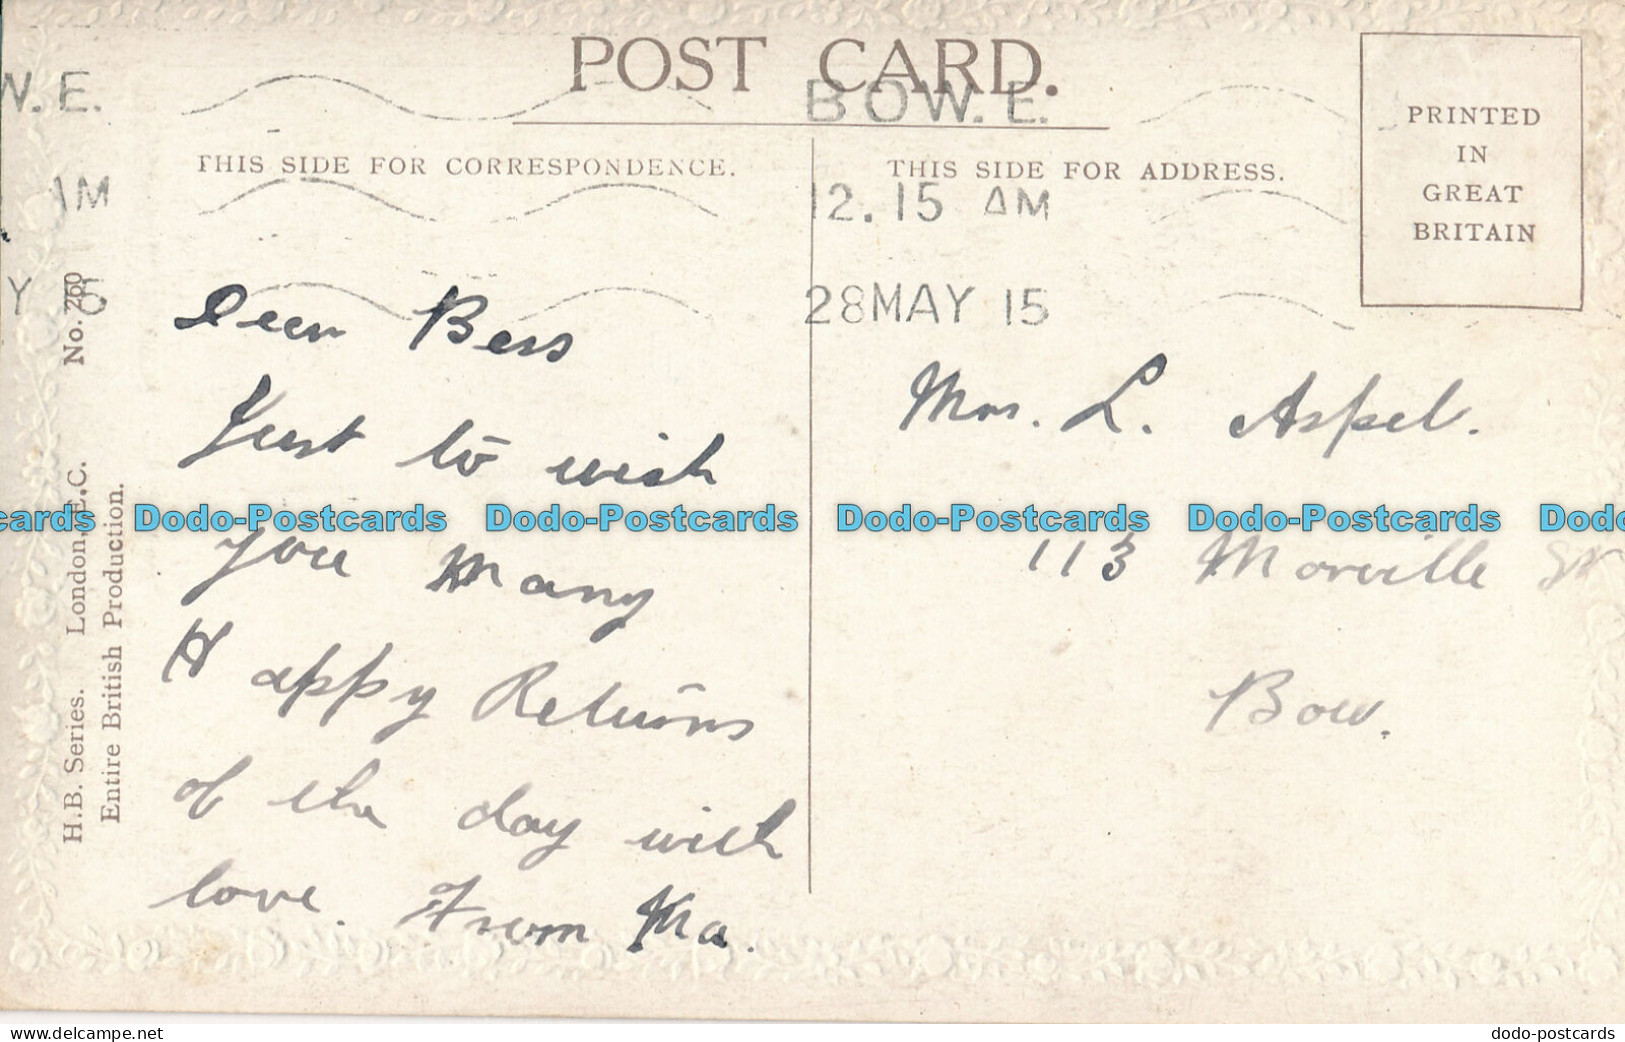 POST CARD.
W. E.
BOW. E.
THIS SIDE FOR CORRESPONDENCE.
THIS SIDE FOR ADDRESS.
PRINTED
IN
GREAT
BRITAIN
AM
12.15 AM
Y 15
28 MAY 15
H.B. Series. London, E.C. No. 260
Entire British Production.
Dear Bess
Just to wish
you Many
Happy Returns
of the day with
love. From Ma.
Mrs. L. Aspel.
113 Morville St
Bow.
cards Dodo-Postcards Dodo-Postcards Dodo-Postcards Dodo-Postcards Dodo
https://www.delcampe.net
dodo-postcards